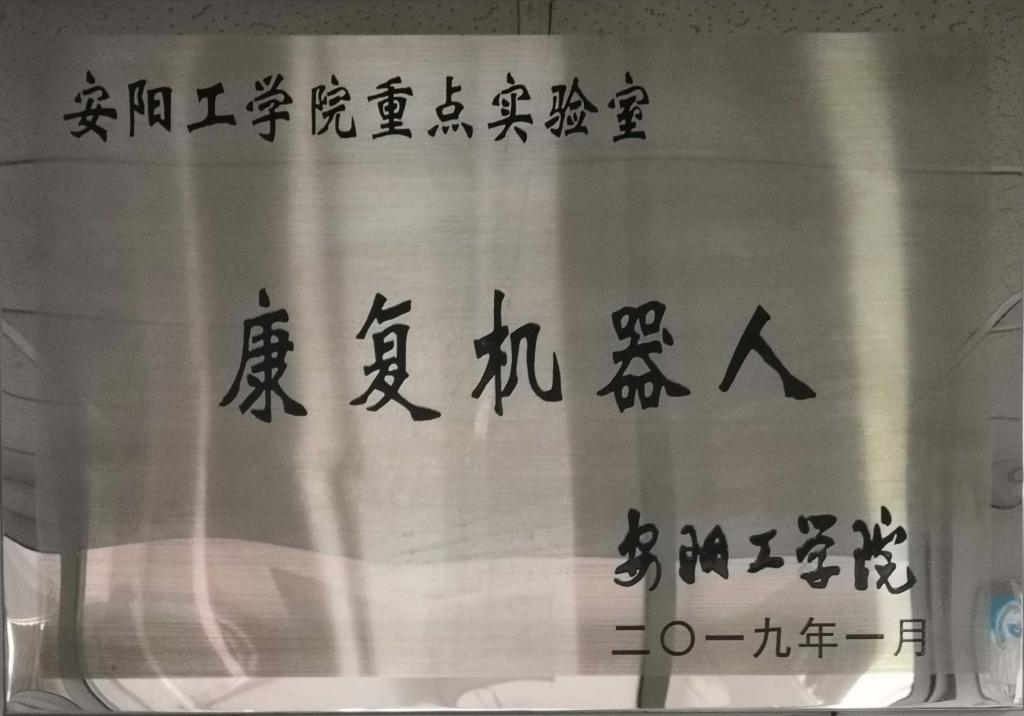 安阳工学院重点实验室
康复机器人
安阳工学院
二〇一九年一月